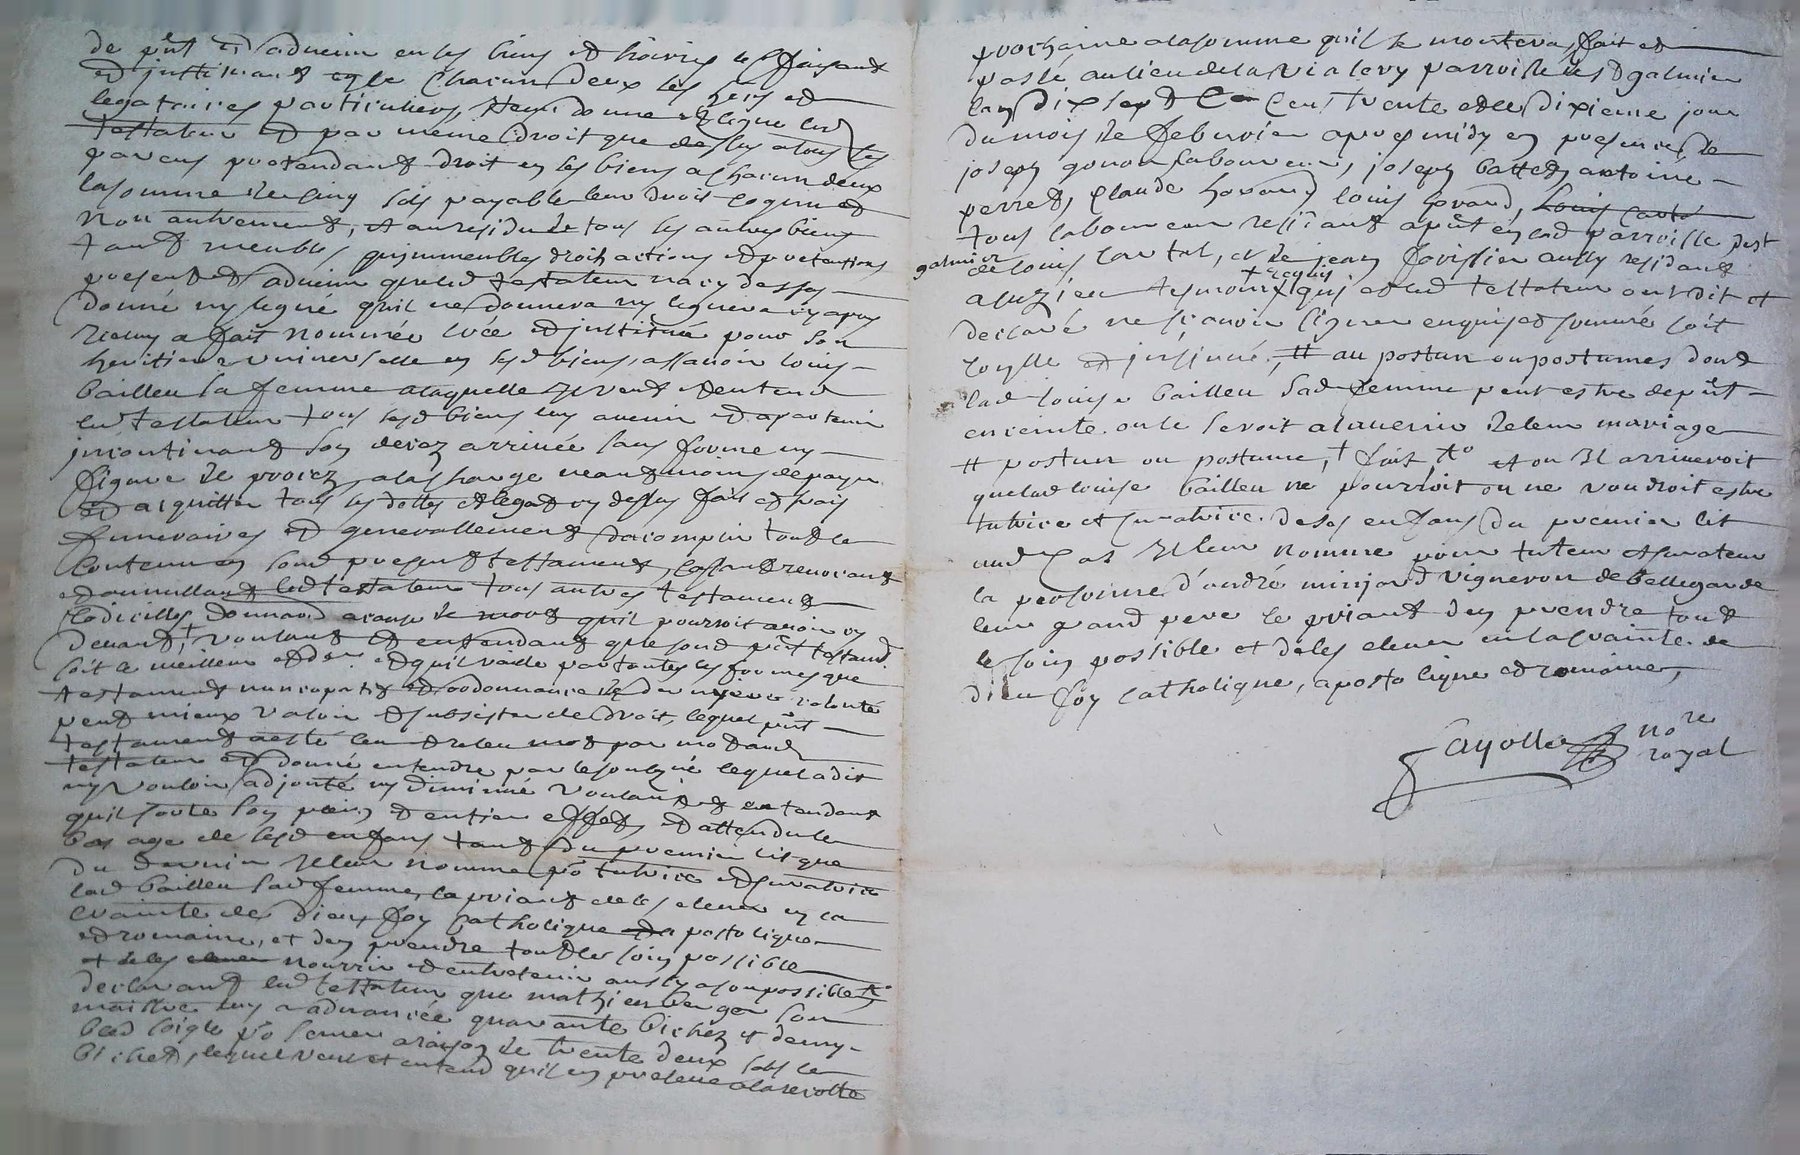 de pnt et advenir en ses biens et hoiries les faisant
et instituant que chacun deux ses hers et
legataires particuliers, Item donne et legue led
testateur et par meme droit que dessus a tous ses
parens pretendant droit en ses biens a chacun deux
la somme de cinq sols payable leur droit cogneu et
non autrement, et au residu de tous ses autres biens
tant meubles qu immeubles droits actions et pretentions
presents et advenir que led testateur na cy dessus
donné ny legué quil ne donnera ny leguera cy apres
Icelluy a fait nommée crée et institué pour son
heritiere universelle en sesd biens, assavoir louise
bailleu sa femme a laquelle Il veut et entend
led testateur tous sesd biens luy avenir et apartenir
incontinant son decez arrivée sans forme ny
figure de procez, a la charge neantmoins de payer
et acquitter tous ses dettes et legat cy dessus fais et frais
funeraires et generallement dacomplir tout le
contenu en sond present testament, cassant revocant
et annullant led testateur tous autres testament
codicilles donnaōn a cause de mort quil pourroit avoir cy
devant, + voulant et entendant que sond pnt testament
soit le meilleur et der et quil vaille par toutes les formes que
testament nuncupatif et ordonnance de derniere volonté
peut mieux valoir et subsister de droit, lequel pnt
testament a esté leu et releu mot par mot aud
testateur et donné entendre par le soubzné lequel a dit
ny vouloir adjouté ny diminué voulant et entendant
quil sorte son plein et entier effet et attendu le
bas age de sesd enfans tant du premier lit que
du dernier Il leur nomme po tutrice et curatrice
lad bailleu sad femme, la priant de les elever en la
crainte de dieu foy catholique apostolique
et romaine, et den prendre tout le soin possible
et de les elever nourrir et entretenir aussy a son possible
declarant led testateur que mathieu son
maistre luy a advancée quarante bichez et demy
bled seigle po semer a raison de trente deux sols le
bichet, lequel veut et entend quil en preleve a la recolte
prochaine a la somme quil se montera, fait et
passé au lieu de la vialery parroisse de st galmier
lan dix sept C cent trente et le dixieme jour
du mois de febvrier apres midy en presences de
joseph gonon laboureur, joseph battet, antoine
perret, claude hovand louis hovand, louis
tous laboureurs residant a pnt en lad parroisse de st
galmier
de louis et de jean aussy residant
a tesmoins + requis qui et led testateur ont dit et
declaré ne scavoir signer enquis et sommé soit
controlle et insinué, # au postum ou postumes dont
lad louise bailleu sad femme peut estre de pnt
enceinte ou le seroit a ladvenir de leur mariage
# postum ou postume, + fait, et ou Il arriveroit
que lad louise bailleu ne pourroit ou ne voudroit estre
tutrice et curatrice de ses enfans du premier lit
aud cas Il leur nomme pour tuteur et curateur
la personne d'andré minjard vigneron de bellegarde
leur grand pere le priant den prendre tout
le soin possible et de les elever en la crainte de
dieu foy catholique, apostolique et romaine,
fayolle nore
royal